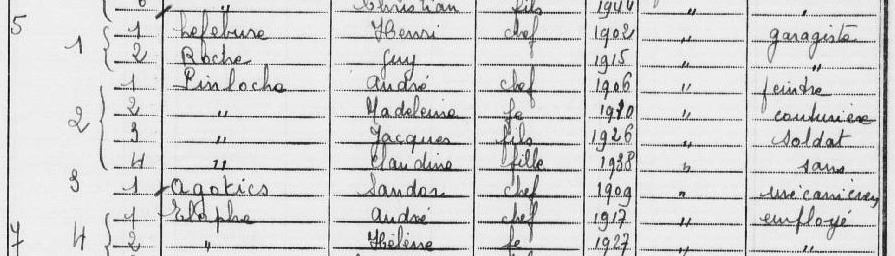 6 " Christian fils 1944 " "
5 1 1 Lefebure Henri chef 1902 " garagiste
2 Roche Guy 1915 " "
2 1 Pinloche André chef 1906 " peintre
2 " Madeleine fe 1910 " couturière
3 " Jacques fils 1926 " soldat
4 " Claudine fille 1938 " sans
3 1 Agotics Sandor chef 1909 " mécanicien
7 4 1 Elophe André chef 1917 " employé
2 " Hélène fe 1927 " "